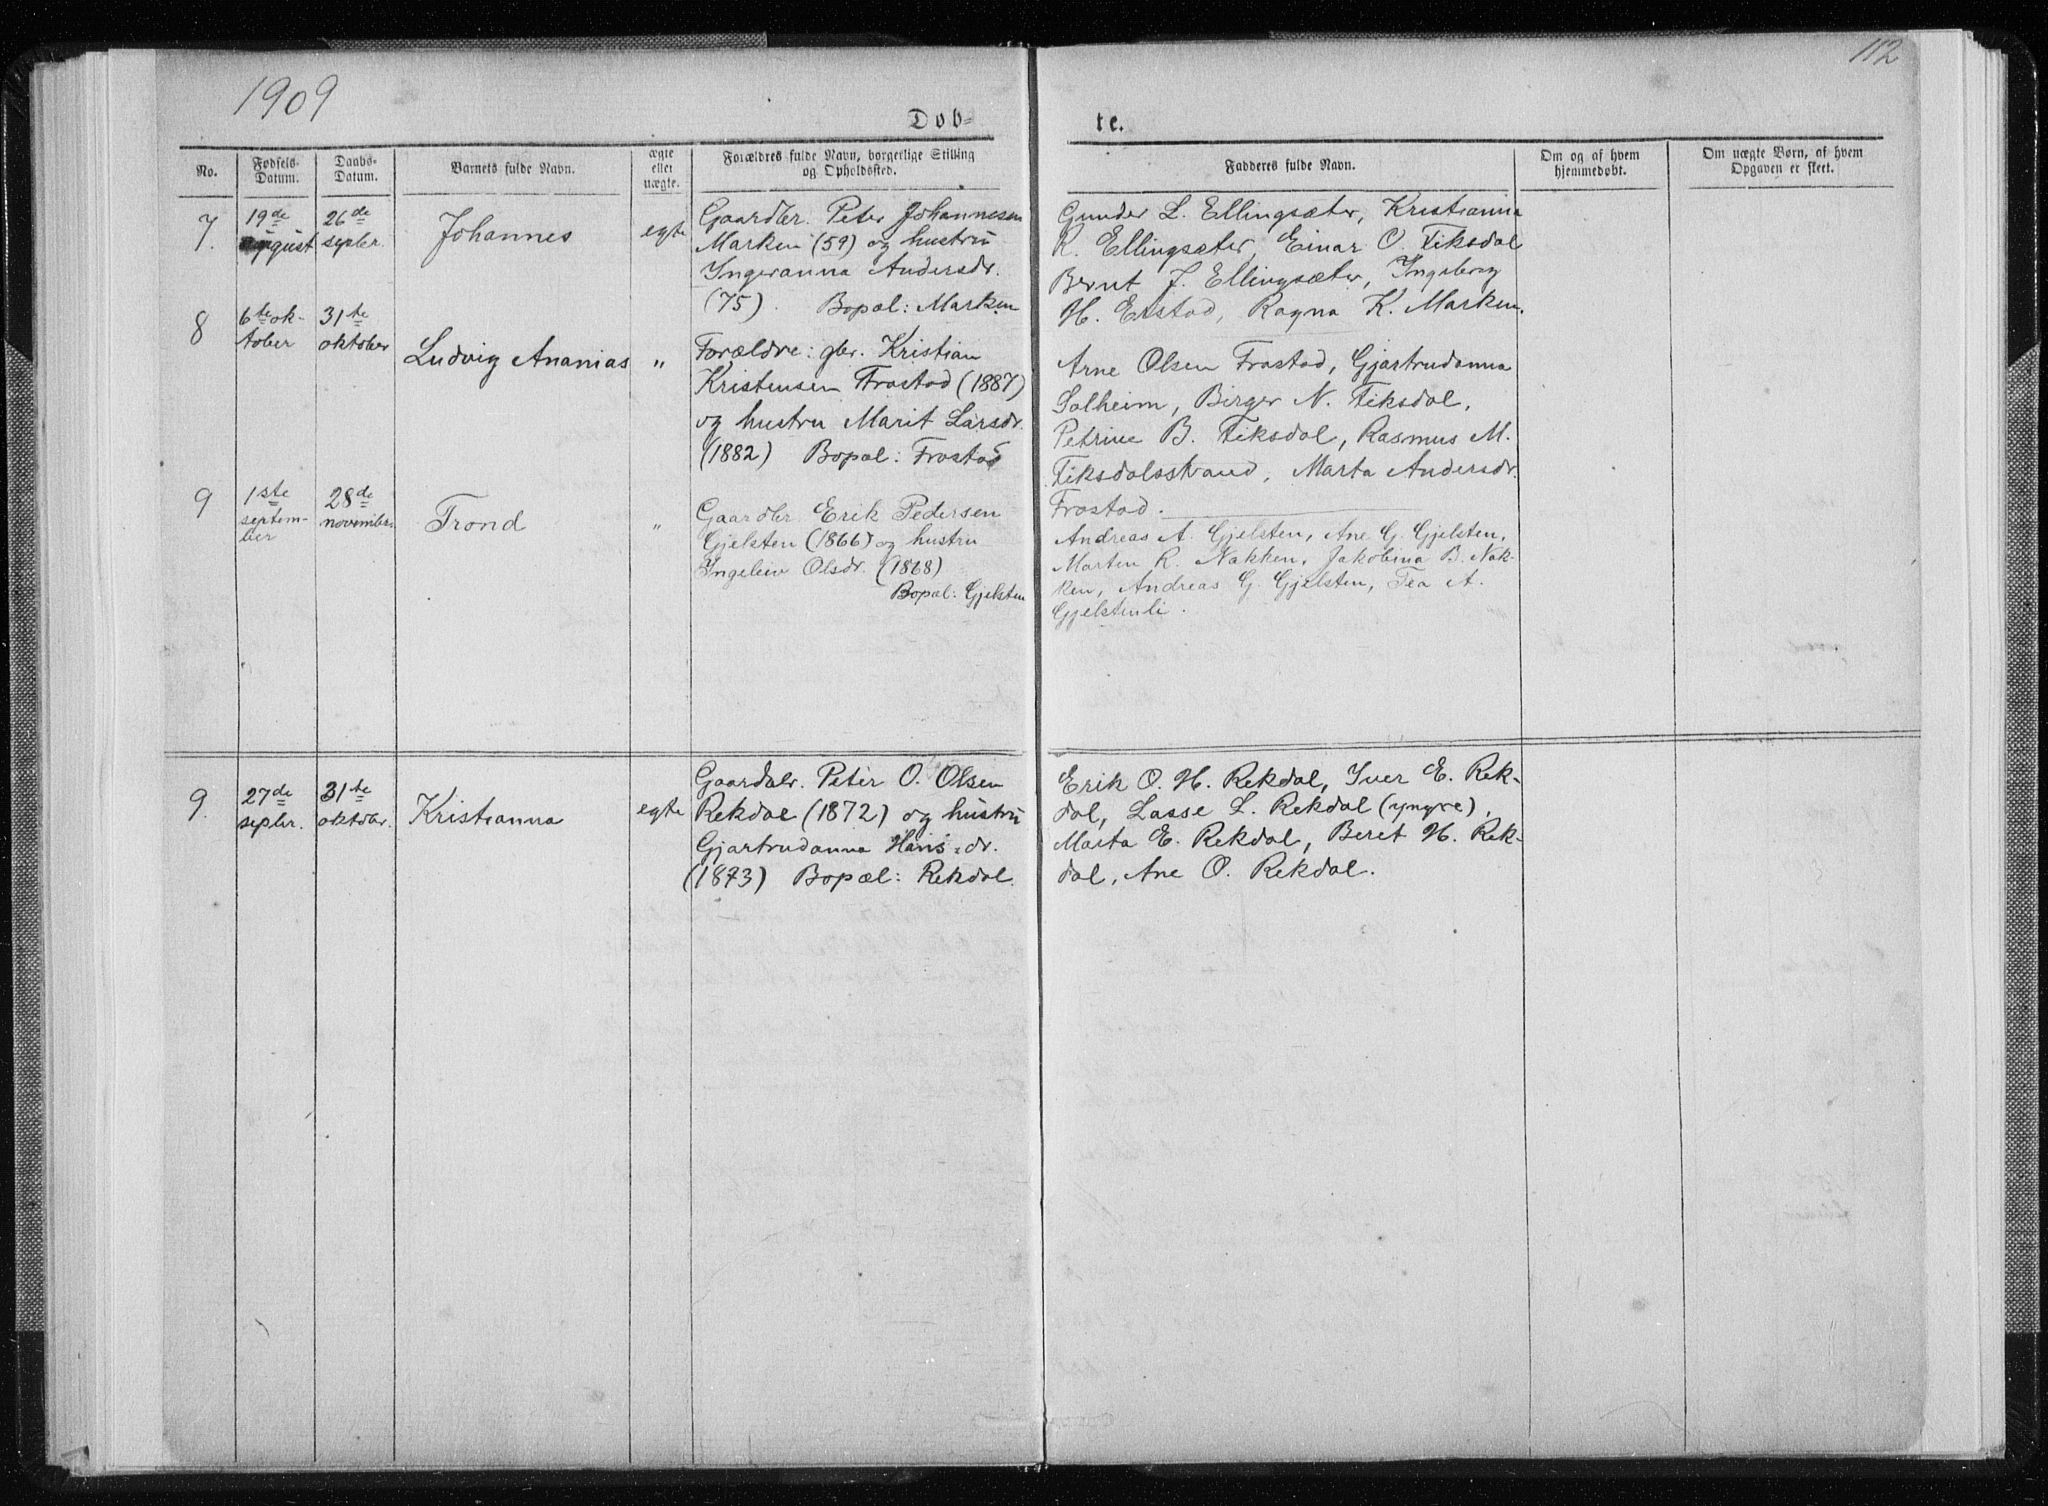 1909
112
Døb=
te.
No.
Fødsels-
Datum.
Daabs-
Datum.
Barnets fulde Navn.
ægte
eller
uægte.
Forældres fulde Navn, borgerlige Stilling
og Opholdssted.
Fadderes fulde Navn.
Om og af hvem
hjemmedøbt.
Om uægte Børn, af hvem
Opgaven er skeet.
7.
19de
august
26de
septbr.
Johannes
egte
Gaardbr. Peter Johannesen
Marken (59) og hustru
Ingeranna Andersdr.
(75). Bopæl: Marken
Gunder L. Ellingsæter, Kristianna
K. Ellingsæter, Einar O. Fiksdal
Bernt J. Ellingsæter, Ingeborg
H. Erstad, Ragna K. Marken.
8
6te ok-
tober
31te
oktober
Ludvig Ananias
"
Forældre: gbr. Kristian
Kristensen Frostad (1887)
og hustru Marit Larsdr.
(1882) Bopæl: Frostad
Arne Olsen Frostad, Gjartrudanna
Solheim, Birger N. Fiksdal,
Petrine B. Fiksdal, Rasmus M.
Fiksdalsstrand, Marta Andersdr.
Frostad.
9
1ste
septem-
ber
28de
november
Trond
"
Gaardbr Erik Pedersen
Gjelsten (1866) og hustru
Ingeleiv Olsdr. (1868)
Bopæl: Gjelsten
Andreas A. Gjelsten, Ane G. Gjelsten,
Marten R. Nakken, Jakobina B. Nak-
ken, Andreas G. Gjelsten, Tea A.
Gjelstenli.
9.
27de
septbr.
31te
oktobr.
Kristianna
egte
Gaardbr. Peter O. Olsen
Rekdal (1872) og hustru
Gjartrudanna Hans=dr.
(1873) Bopæl: Rekdal.
Erik O. H. Rekdal, Iver E. Rek-
dal, Lasse L. Rekdal (yngre),
Marta E. Rekdal, Beret H. Rek-
dal, Ane O. Rekdal.